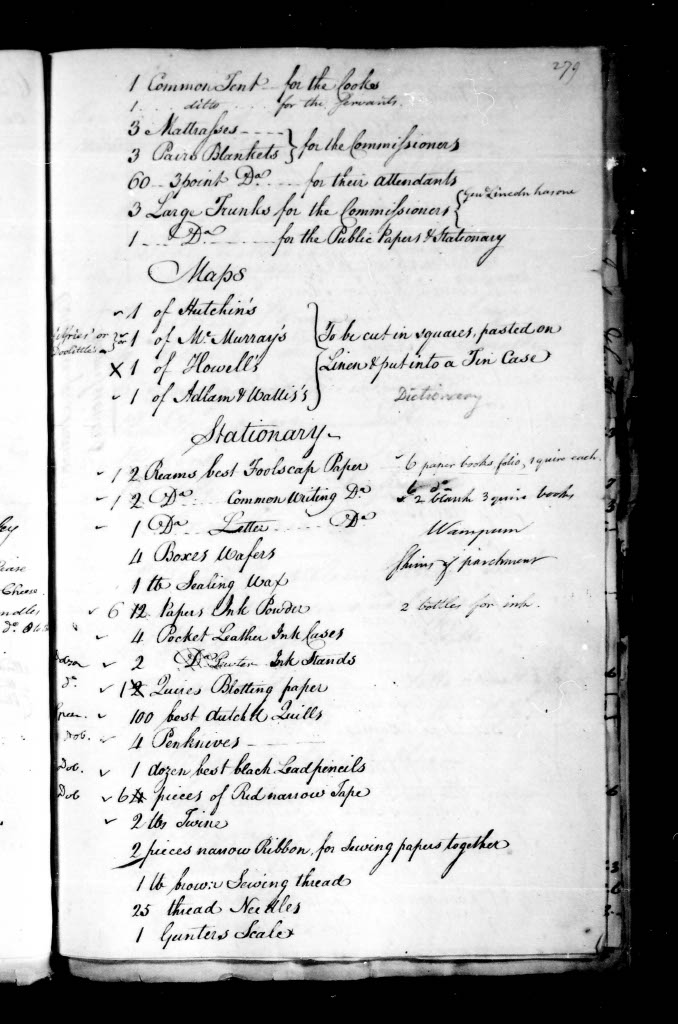 279
1 Common Tent for the Cooks
1 ditto for the Servants
3 Mattrasses
3 Pairs Blankets } for the Commissioners
60 3 point Do. for their attendants
3 Large Trunks for the Commissioners { Genl. Lincoln has one
1 Do for the Public Papers & Stationary
Maps
1 of Hutchin's
or Doolittle's 1 of Mc.Murray's } To be cut in squares, pasted on
X 1 of Howell's Linen & put into a Tin Case
1 of Adlam & Wallis's
Dictionary
Stationary
1 2 Reams best Foolscap Paper 6 paper books folio, 1 quire each.
1 2 Do. Common Writing Do. 6 do 2 blank 3 quire books
1 Do Letter Do Wampum
4 Boxes Wafers Skins of parchment
1 lb Sealing Wax
6 12 Papers Ink Powder 2 bottles for ink.
4 Pocket Leather Ink Cases
2 Do Pewter Ink Stands
do. 12 Quires Blotting paper
100 best dutch Quills
Dob. 4 Penknives
Dob. 1 dozen best black Lead pencils
Dob 6 pieces of Red narrow Tape
2 lbs Twine
2 pieces narrow Ribbon, for sewing papers together
1 lb brown Sewing thread
25 thread Needles
1 Gunters Scale
Cheese